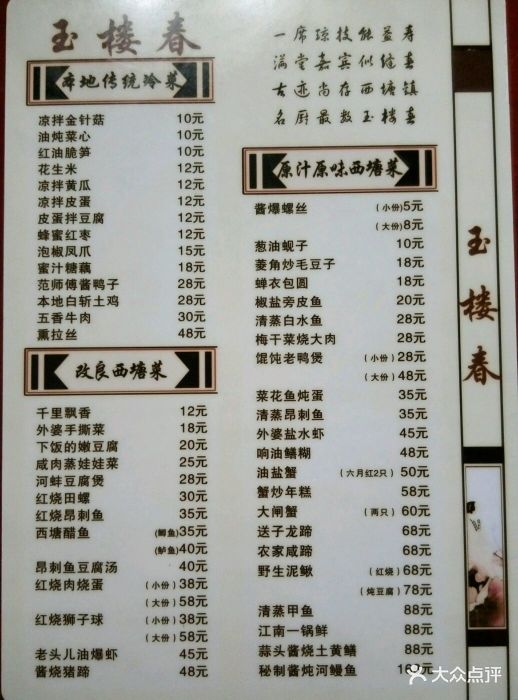 玉楼春
本地传统冷菜
凉拌金针菇 10元
油炖菜心 10元
红油脆笋 10元
花生米 12元
凉拌黄瓜 12元
凉拌皮蛋 12元
皮蛋拌豆腐 12元
蜂蜜红枣 12元
泡椒凤爪 15元
蜜汁糖藕 18元
范师傅酱鸭子 28元
本地白斩土鸡 28元
五香牛肉 30元
熏拉丝 48元
改良西塘菜
千里飘香 12元
外婆手撕菜 18元
下饭的嫩豆腐 20元
咸肉蒸娃娃菜 25元
河蚌豆腐煲 28元
红烧田螺 30元
红烧昂刺鱼 35元
西塘醋鱼 (鲫鱼)35元
(鲈鱼)40元
昂刺鱼豆腐汤 40元
红烧肉烧蛋 (小份)38元
(大份)58元
红烧狮子球 (小份)38元
(大份)58元
老头儿油爆虾 45元
酱烧猪蹄 48元
一席琼技能益寿
满堂嘉宾似缝春
古迹尚存西塘镇
名厨最数玉楼春
原汁原味西塘菜
酱爆螺丝 (小份)5元
(大份)8元
葱油蚬子 10元
菱角炒毛豆子 18元
蝉衣包圆 18元
椒盐旁皮鱼 20元
清蒸白水鱼 28元
梅干菜烧大肉 28元
馄饨老鸭煲 (小份)28元
(大份)48元
菜花鱼炖蛋 35元
清蒸昂刺鱼 35元
外婆盐水虾 45元
响油鳝糊 48元
油盐蟹 (六月红2只)50元
蟹炒年糕 58元
大闸蟹 (两只)60元
送子龙蹄 68元
农家咸蹄 68元
野生泥鳅 (红烧)68元
(炖豆腐)78元
清蒸甲鱼 88元
江南一锅鲜 88元
蒜头酱烧土黄鳝 88元
秘制酱炖河鳗鱼 16元
玉楼春
大众点评